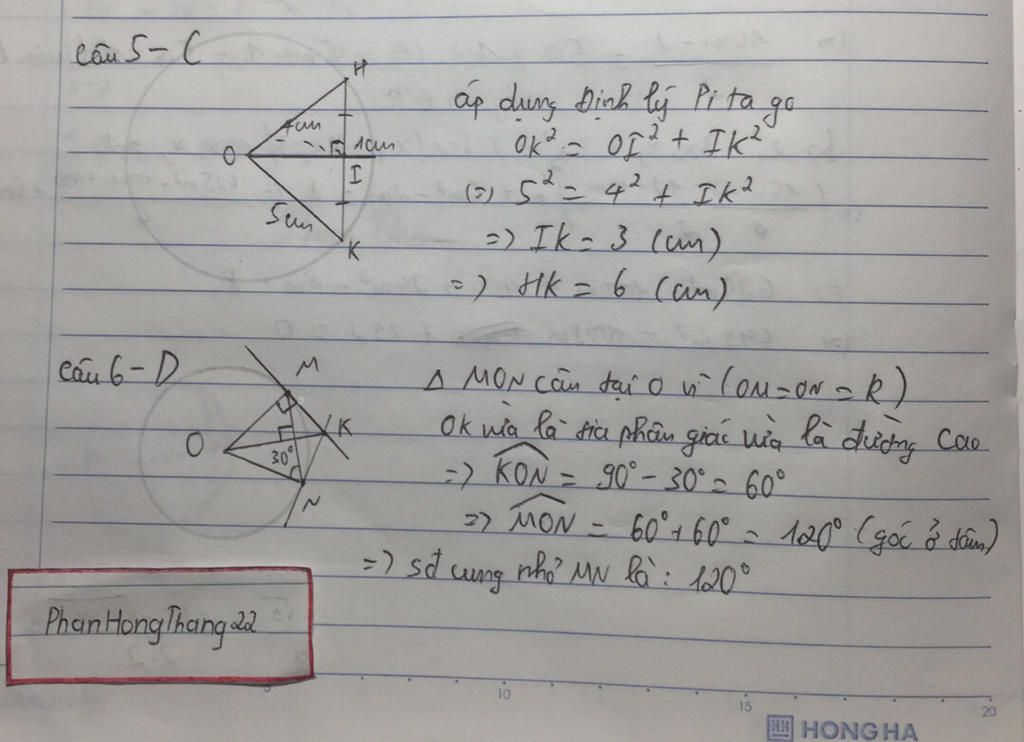 Câu 5 - C
H
4cm
O
1cm
I
5cm
K
áp dụng Định lý Pitago
OK² = OI² + IK²
(=) 5² = 4² + IK²
=) IK = 3 (cm)
=) HK = 6 (cm)
Câu 6 - D
M
O
K
30°
N
Δ MON cân tại O vì (OM = ON = R)
OK vừa là tia phân giác vừa là đường cao
=) \widehat{KON} = 90° - 30° = 60°
=) \widehat{MON} = 60° + 60° = 120° (góc ở tâm)
=) sđ cung nhỏ MN là: 120°
PhanHongThang22
5 10 15 20
HH HONG HA